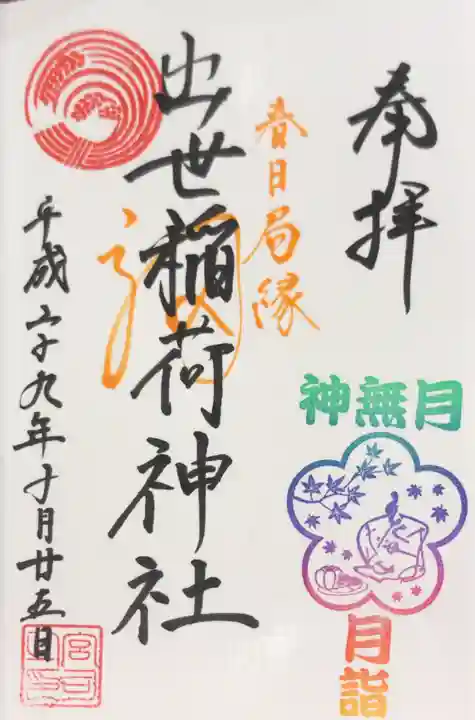 奉拝
春日局縁
出世稲荷神社
平成二十九年十月廿五日
神無月
月詣